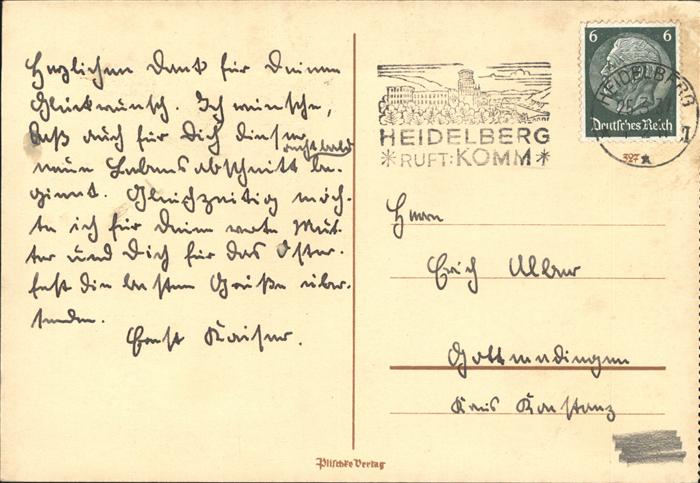 Herzlichen Dank für Deinen
Glückwunsch. Ich wünsche,
daß auch für Dich dieser recht bald
neue Lebensabschnitt be-
ginnt. Gleichzeitig möch-
te ich für Deine werte Mut-
ter und Dich für das Oster-
fest die besten Grüße über-
senden.
Ernst Kaiser.
Plischke Verlag
HEIDELBERG
*RUFT: KOMM*
6 6
Deutsches Reich
HEIDELBERG
327
Herrn
Erich
Gottmadingen
Kreis Konstanz